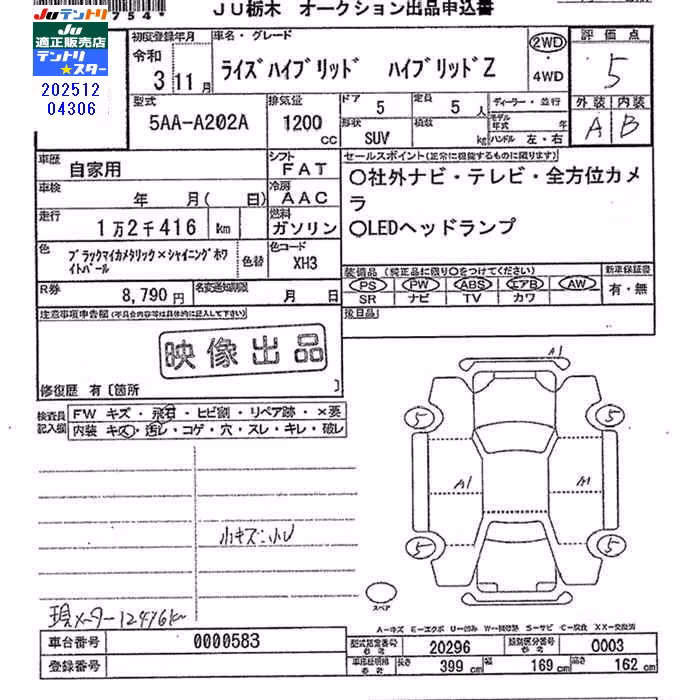 JUテントリ
JU
適正販売店
テントリ
★スター
202512
04306
754*
JU栃木 オークション出品申込書
初度登録年月
令和
3
11月
車名・グレード
ライズハイブリッド ハイブリッドZ
2WD
・
4WD
評価点
5
外装 内装
A B
型式
5AA-A202A
排気量
1200
cc
ドア
5
定員
5人
形状
SUV
積数
kg
ディーラー・並行
モデル年式 年
ハンドル 左・右
車歴
自家用
シフト
FAT
車検
年 月( 日)
冷房
AAC
走行
1万2千416 km
燃料
ガソリン
色
ブラックマイカメタリック×シャイニングホワイトパール
色替
色コード
XH3
R券
8,790円
名変通知期限
月 日
セールスポイント(正常に機能するものに限ります)
○社外ナビ・テレビ・全方位カメ
ラ
○LEDヘッドランプ
装備品(純正品に限り○をつけてください)
PS PW ABS エアB AW
SR ナビ TV カワ
新車保証書
有・無
後日品
注意事項申告欄(不具合内容等は具体的に記入して下さい)
映像出品
修復歴 有〔箇所 〕
検査員
記入欄
FW キズ・飛石・ヒビ割・リペア跡・×要
内装 キズ・汚レ・コゲ・穴・スレ・キレ・破レ
小キズ:小ヨ
現メーター12416km
A1
5
5
A1
A1
5
5
スペア
A―キズ E―エクボ U―凹み W―補修跡 S―サビ C―腐食 XX―交換済
車台番号
0000583
登録番号
型式指定番号
参考
20296
類別区分番号
参考
0003
車検証明細
参考
長さ
399 cm
幅
169 cm
高さ
162 cm